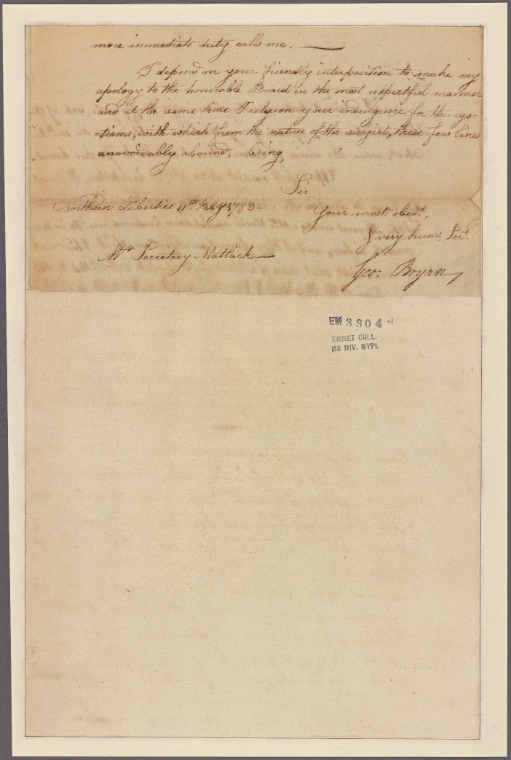 more immediate duty calls me. —
I depend on your friendly interposition to make my
apology to the honorable Board in the most respectful manner
and at the same time I rely on your indulgence for the ego-
tisms, with which from the nature of the subject, these few lines
unavoidably abound, being,
Sir
Northern Liberties 11th Feby 1783
Your most obedt.,
& very hum: Sert.
Mr. Secretary Matlack —
Geo: Bryan
EM 3304
EMMET COLL.
MS DIV. NYPL